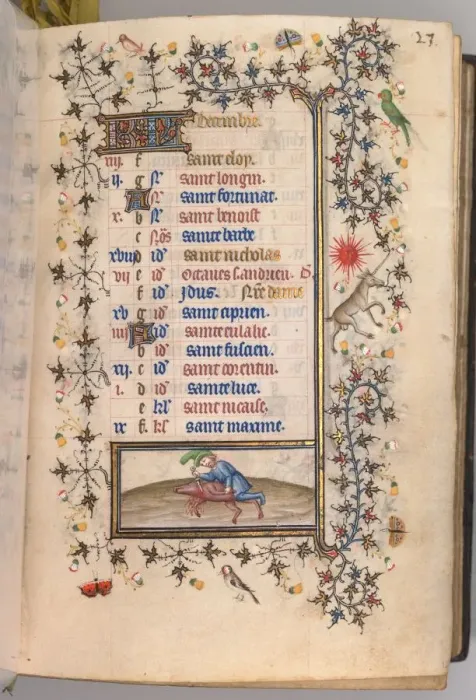 27.
KL Decembre.
iiij. f saint eloy.
ij. g N saint longin.
A N saint fortunat.
x. b N saint benoist
c Nōs sainte barbe
xviij d id' saint nicholas
vij e id' Octaues s andrieu.
f id' Jdus. Nr̄e dame
xv g id' saint ciprien.
iiij A id' sainte eulalie.
b id' saint fuscien.
xij. c id' saint corentin.
i. d id' sainte luce.
e kl' saint nicaise.
ix f. kl' saint maxime.